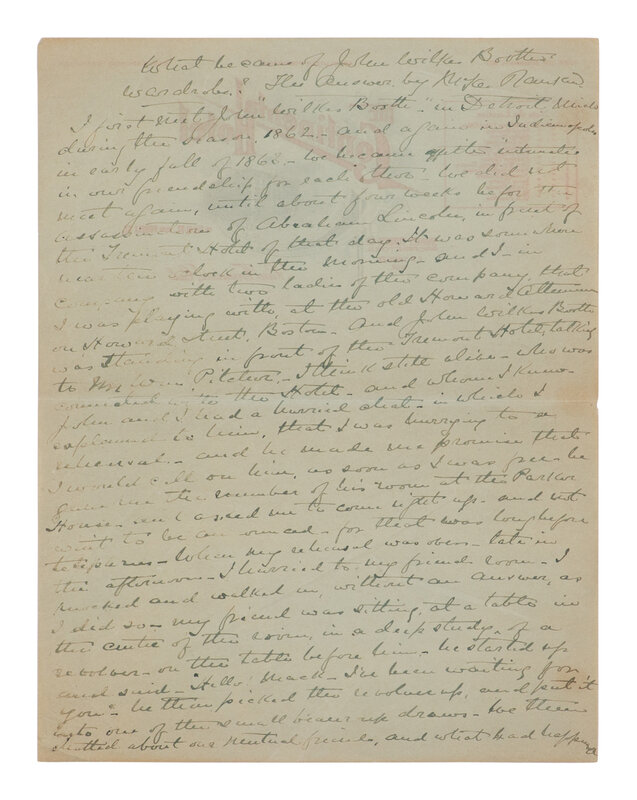 What became of John Wilkes Booths'
wardrobe? The answer by McKee Rankin.
I first met John "Wilkes Booth" in Detroit Mich
during the season 1862 - and again in Indianapolis
in early fall of 1862 - we became quite intimate
in our friendship for each other. We did not
meet again, until about four weeks before the
assassination of Abraham Lincoln, in front of
the Tremont Hotel of that day. It was somewhere
near ten o'clock in the morning - and I - in
company with two ladies of the company, that
I was playing with, at the old Howard Atheneum
on Howard Street, Boston - and John Wilkes Booth
was standing in front of the Tremont Hotel, talking
to Mr Wm. Pitcher, - I think still alive - who was
connected with the Hotel - and whom I knew -
John and I had a hurried chat - in which I
explained to him, that I was hurrying to a
rehearsal - and he made me promise that
I would call on him, as soon as I was free - he
gave me the number of his room at the Parker
House - and asked me to come right up - and not
wait to be announced - for that was long before
telephones - When my rehearsal was over - late in
the afternoon - I hurried to my friends room - I
knocked and walked in, without an answer, as
I did so - my friend was sitting, at a table in
the centre of the room, in a deep study, of a
revolver - on the table before him - he started up
and said - "Hello, Mack - I've been waiting for
you" - he then picked the revolver up, and put it
into one of the small bureau draws - We then
chatted about our mutual friends, and what had happened